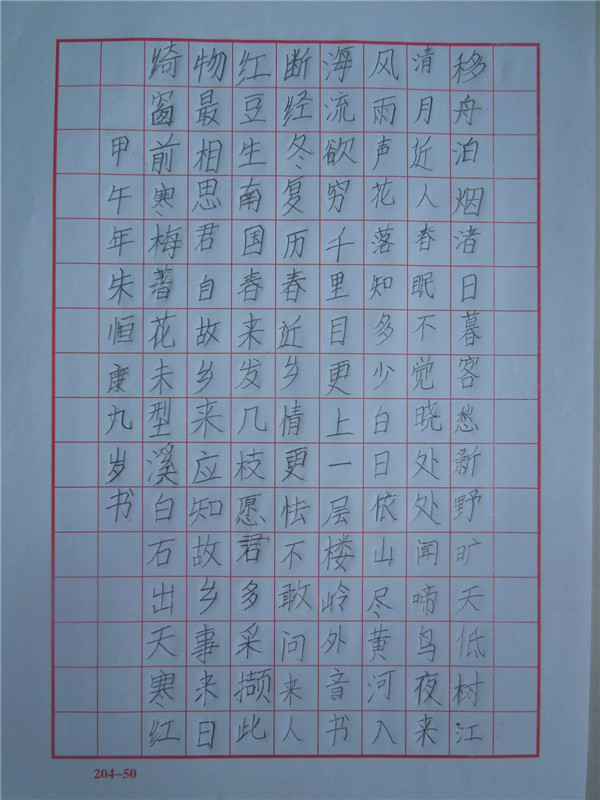 移舟泊烟渚日暮客愁新野旷天低树江
清月近人春眠不觉晓处处闻啼鸟夜来
风雨声花落知多少白日依山尽黄河入
海流欲穷千里目更上一层楼岭外音书
断经冬复历春近乡情更怯不敢问来人
红豆生南国春来发几枝愿君多采撷此
物最相思君自故乡来应知故乡事来日
绮窗前寒梅著花未型溪白石出天寒红
甲午年朱恒度九岁书
204-50